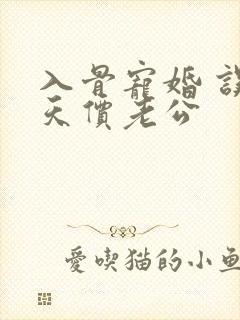 入骨寵婚 誤
天價老公
愛喫猫的小魚